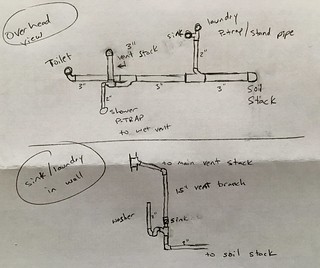 Overhead
view
Toilet
3"
3"
vent stack
sink
laundry
P-trap/stand pipe
2"
3"
3"
Soil
Stack
2"
shower
P-TRAP
to wet vent
sink/laundry
in wall
to main vent stack
1.5" vent branch
washer
sink
2"
to soil stack